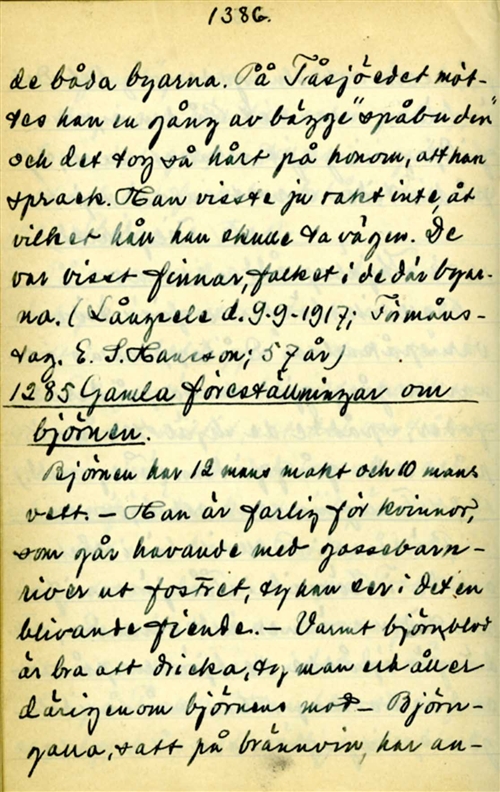 1386.
de båda byarna. På Tåsjöedet möt-
tes han en gång av bägge "spåbuden"
och det tog så hårt på honom, att han
sprack. Han visste ju rakt inte, åt
vilket håll han skulle ta vägen. De
var visst finnar, folket i de där byar-
na. (Långsele d. 9-9-1917; Förmåns-
tag. E. S. Hansson; 57 år)
1285 Gamla föreställningar om
björnen.
Björnen har 12 mans makt och 10 mans
vett. – Han är farlig för kvinnor,
som går havande med gossebarn –
river ut fostret, ty han ser i det en
blivande fiende. – Varmt björnblod
är bra att dricka, ty man erhåller
därigenom björnens mod – Björn-
galla, satt på brännvin, har an-